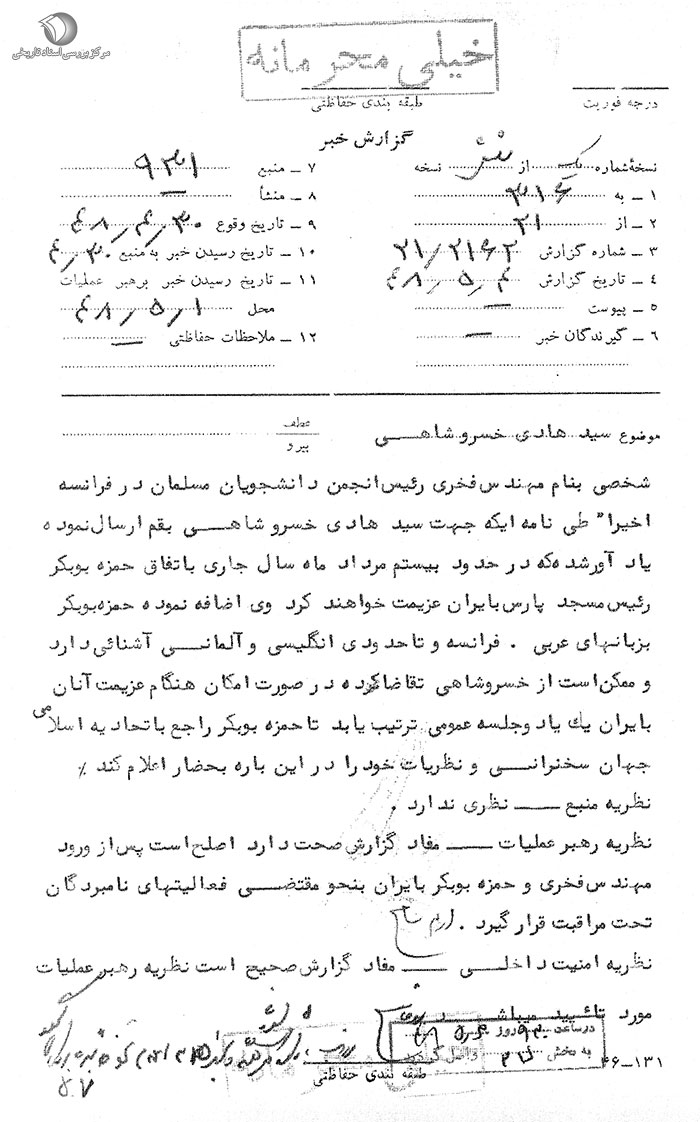 مرکز بررسی اسناد تاریخی
خیلی محرمانه
طبقه بندی حفاظتی
درجه فوریت
گزارش خبر
نسخهٔ شماره یک از شش نسخه
۱ ـ به ۳۱۶
۲ ـ از ۲۱
۳ ـ شماره گزارش ۲۱/۲۱۶۲
۴ ـ تاریخ گزارش ۴۸/۵/۴
۵ ـ پیوست —
۶ ـ گیرندگان خبر —
۷ ـ منبع ۹۳۱
۸ ـ منشأ —
۹ ـ تاریخ وقوع ۴۸/۴/۳۰
۱۰ ـ تاریخ رسیدن خبر به منبع ۴/۳۰
۱۱ ـ تاریخ رسیدن خبر برهبر عملیات
محل ۴۸/۵/۱
۱۲ ـ ملاحظات حفاظتی —
موضوع سید هادی خسروشاهی
عطف
پیرو
شخصی بنام مهندس فخری رئیس انجمن دانشجویان مسلمان در فرانسه
اخیرا" طی نامه ایکه جهت سید هادی خسروشاهی بقم ارسال نموده
یاد آور شده که در حدود بیستم مرداد ماه سال جاری باتفاق حمزه بوبکر
رئیس مسجد پارس بایران عزیمت خواهند کرد وی اضافه نموده حمزه بوبکر
بزبانهای عربی . فرانسه و تاحدودی انگلیسی و آلمانی آشنائی دارد
و ممکن است از خسروشاهی تقاضا کرده در صورت امکان هنگام عزیمت آنان
بایران یك یا دوجلسه عمومی ترتیب یابد تا حمزه بوبکر راجع باتحادیه اسلامی
جهان سخنرانی و نظریات خود را در این باره بحضار اعلام کند ٪
نظریه منبع ــ نظری ندارد .
نظریه رهبر عملیات ــ مفاد گزارش صحت دارد اصلح است پس از ورود
مهندس فخری و حمزه بوبکر بایران بنحو مقتضی فعالیتهای نامبردگان
تحت مراقبت قرار گیرد .
نظریه امنیت داخلی ــ مفاد گزارش صحیح است نظریه رهبر عملیات
مورد تائید میباشد .
در ساعت روز
به بخش واصل گردید
۱۳۱ـ۴۶
طبقه بندی حفاظتی
خیلی محرمانه